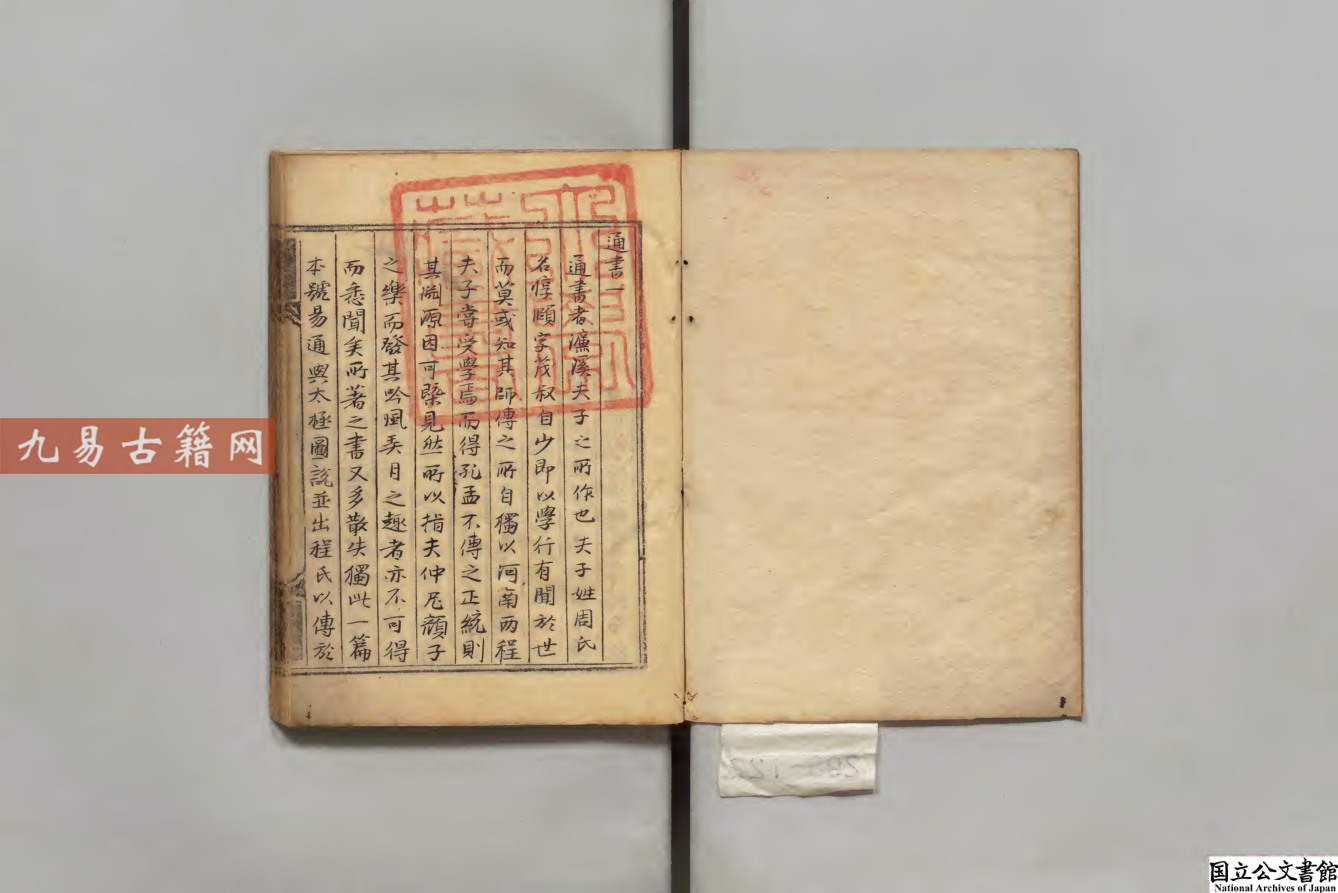 通書一
通書者濂溪夫子之所作也夫子姓周氏
名惇頤字茂叔自少即以學行有聞於世
而莫或知其師傳之所自獨以河南兩程
夫子嘗受學焉而得孔孟不傳之正統則
其淵源因可槩見然所以指夫仲尼顏子
之樂而發其吟風弄月之趣者亦不可得
而悉聞矣所著之書又多散失獨此一篇
本號易通與太極圖說並出程氏以傳於
九易古籍网
国立公文書館
National Archives of Japan